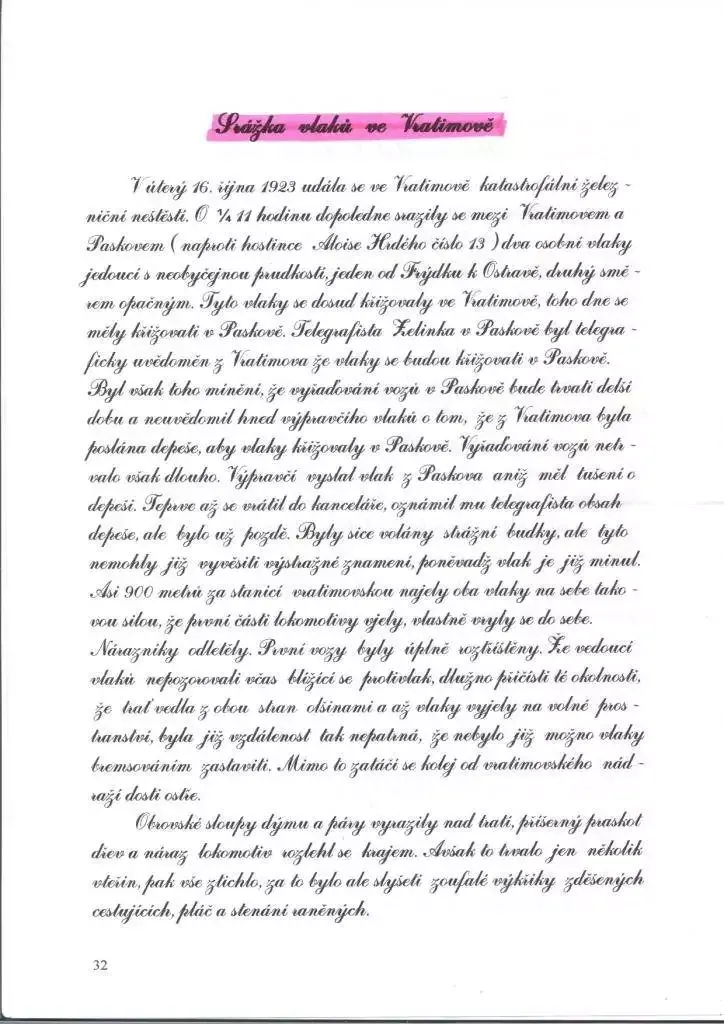 Srážka vlaků ve Vratimově
V úterý 16. října 1923 udála se ve Vratimově katastrofální želez -
niční neštěstí. O ¼ 11 hodinu dopoledne srazily se mezi Vratimovem a
Paskovem ( naproti hostince Aloise Hrdého číslo 13 ) dva osobní vlaky
jedoucí s neobyčejnou prudkostí, jeden od Frýdku k Ostravě, druhý smě-
rem opačným. Tyto vlaky se dosud křižovaly ve Vratimově, toho dne se
měly křižovati v Paskově. Telegrafista Zelinka v Paskově byl telegra -
ficky uvědoměn z Vratimova že vlaky se budou křižovati v Paskově.
Byl však toho mínění, že vyřaďování vozů v Paskově bude trvati delší
dobu a neuvědomil hned výpravčího vlaků o tom, že z Vratimova byla
poslána depeše, aby vlaky křižovaly v Paskově. Vyřaďování vozů netr -
valo však dlouho. Výpravčí vyslal vlak z Paskova aniž měl tušení o
depeši. Teprve až se vrátil do kanceláře, oznámil mu telegrafista obsah
depeše, ale bylo už pozdě. Byly sice volány strážní budky, ale tyto
nemohly již vyvěsiti výstražné znamení, poněvadž vlak je již minul.
Asi 900 metrů za stanicí vratimovskou najely oba vlaky na sebe tako -
vou silou, že první části lokomotivy vjely, vlastně vryly se do sebe.
Nárazníky odletěly. První vozy byly úplně roztříštěny. Že vedoucí
vlaků nepozorovali včas blížící se protivlak, dlužno přičísti té okolnosti,
že trať vedla z obou stran olšinami a až vlaky vyjely na volné pros -
tranství, byla již vzdálenost tak nepatrná, že nebylo již možno vlaky
bremsováním zastaviti. Mimo to zatáčí se kolej od vratimovského nád -
raží dosti ostře.
Obrovské sloupy dýmu a páry vyrazily nad tratí, příšerný praskot
dřev a náraz lokomotiv rozlehl se krajem. Avšak to trvalo jen několik
vteřin, pak vše ztichlo, za to bylo ale slyšeti zoufalé výkřiky zděšených
cestujících, pláč a stenání raněných.
32